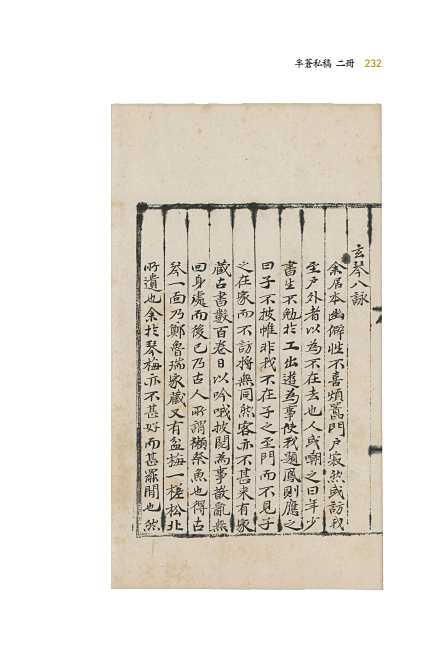 半蒼私稿 二冊 232
玄琴八詠
余居本幽僻性不喜煩囂門戶寂然或訪我
至戶外者以為不在去也人或嘲之曰年少
書生不勉於工出遊為事使我題鳳則應之
曰子不披帷非我不在子之至門而不見子
之在家而不訪將無同然客亦不甚来有家
藏古書數百卷日以吟哦披閱為事散亂無
回身處而後已乃古人所謂獺祭魚也得古
琴一面乃鄭魯瑞家藏又有盆梅一槎松北
所遺也余於琴梅亦不甚好而甚罷閒也然